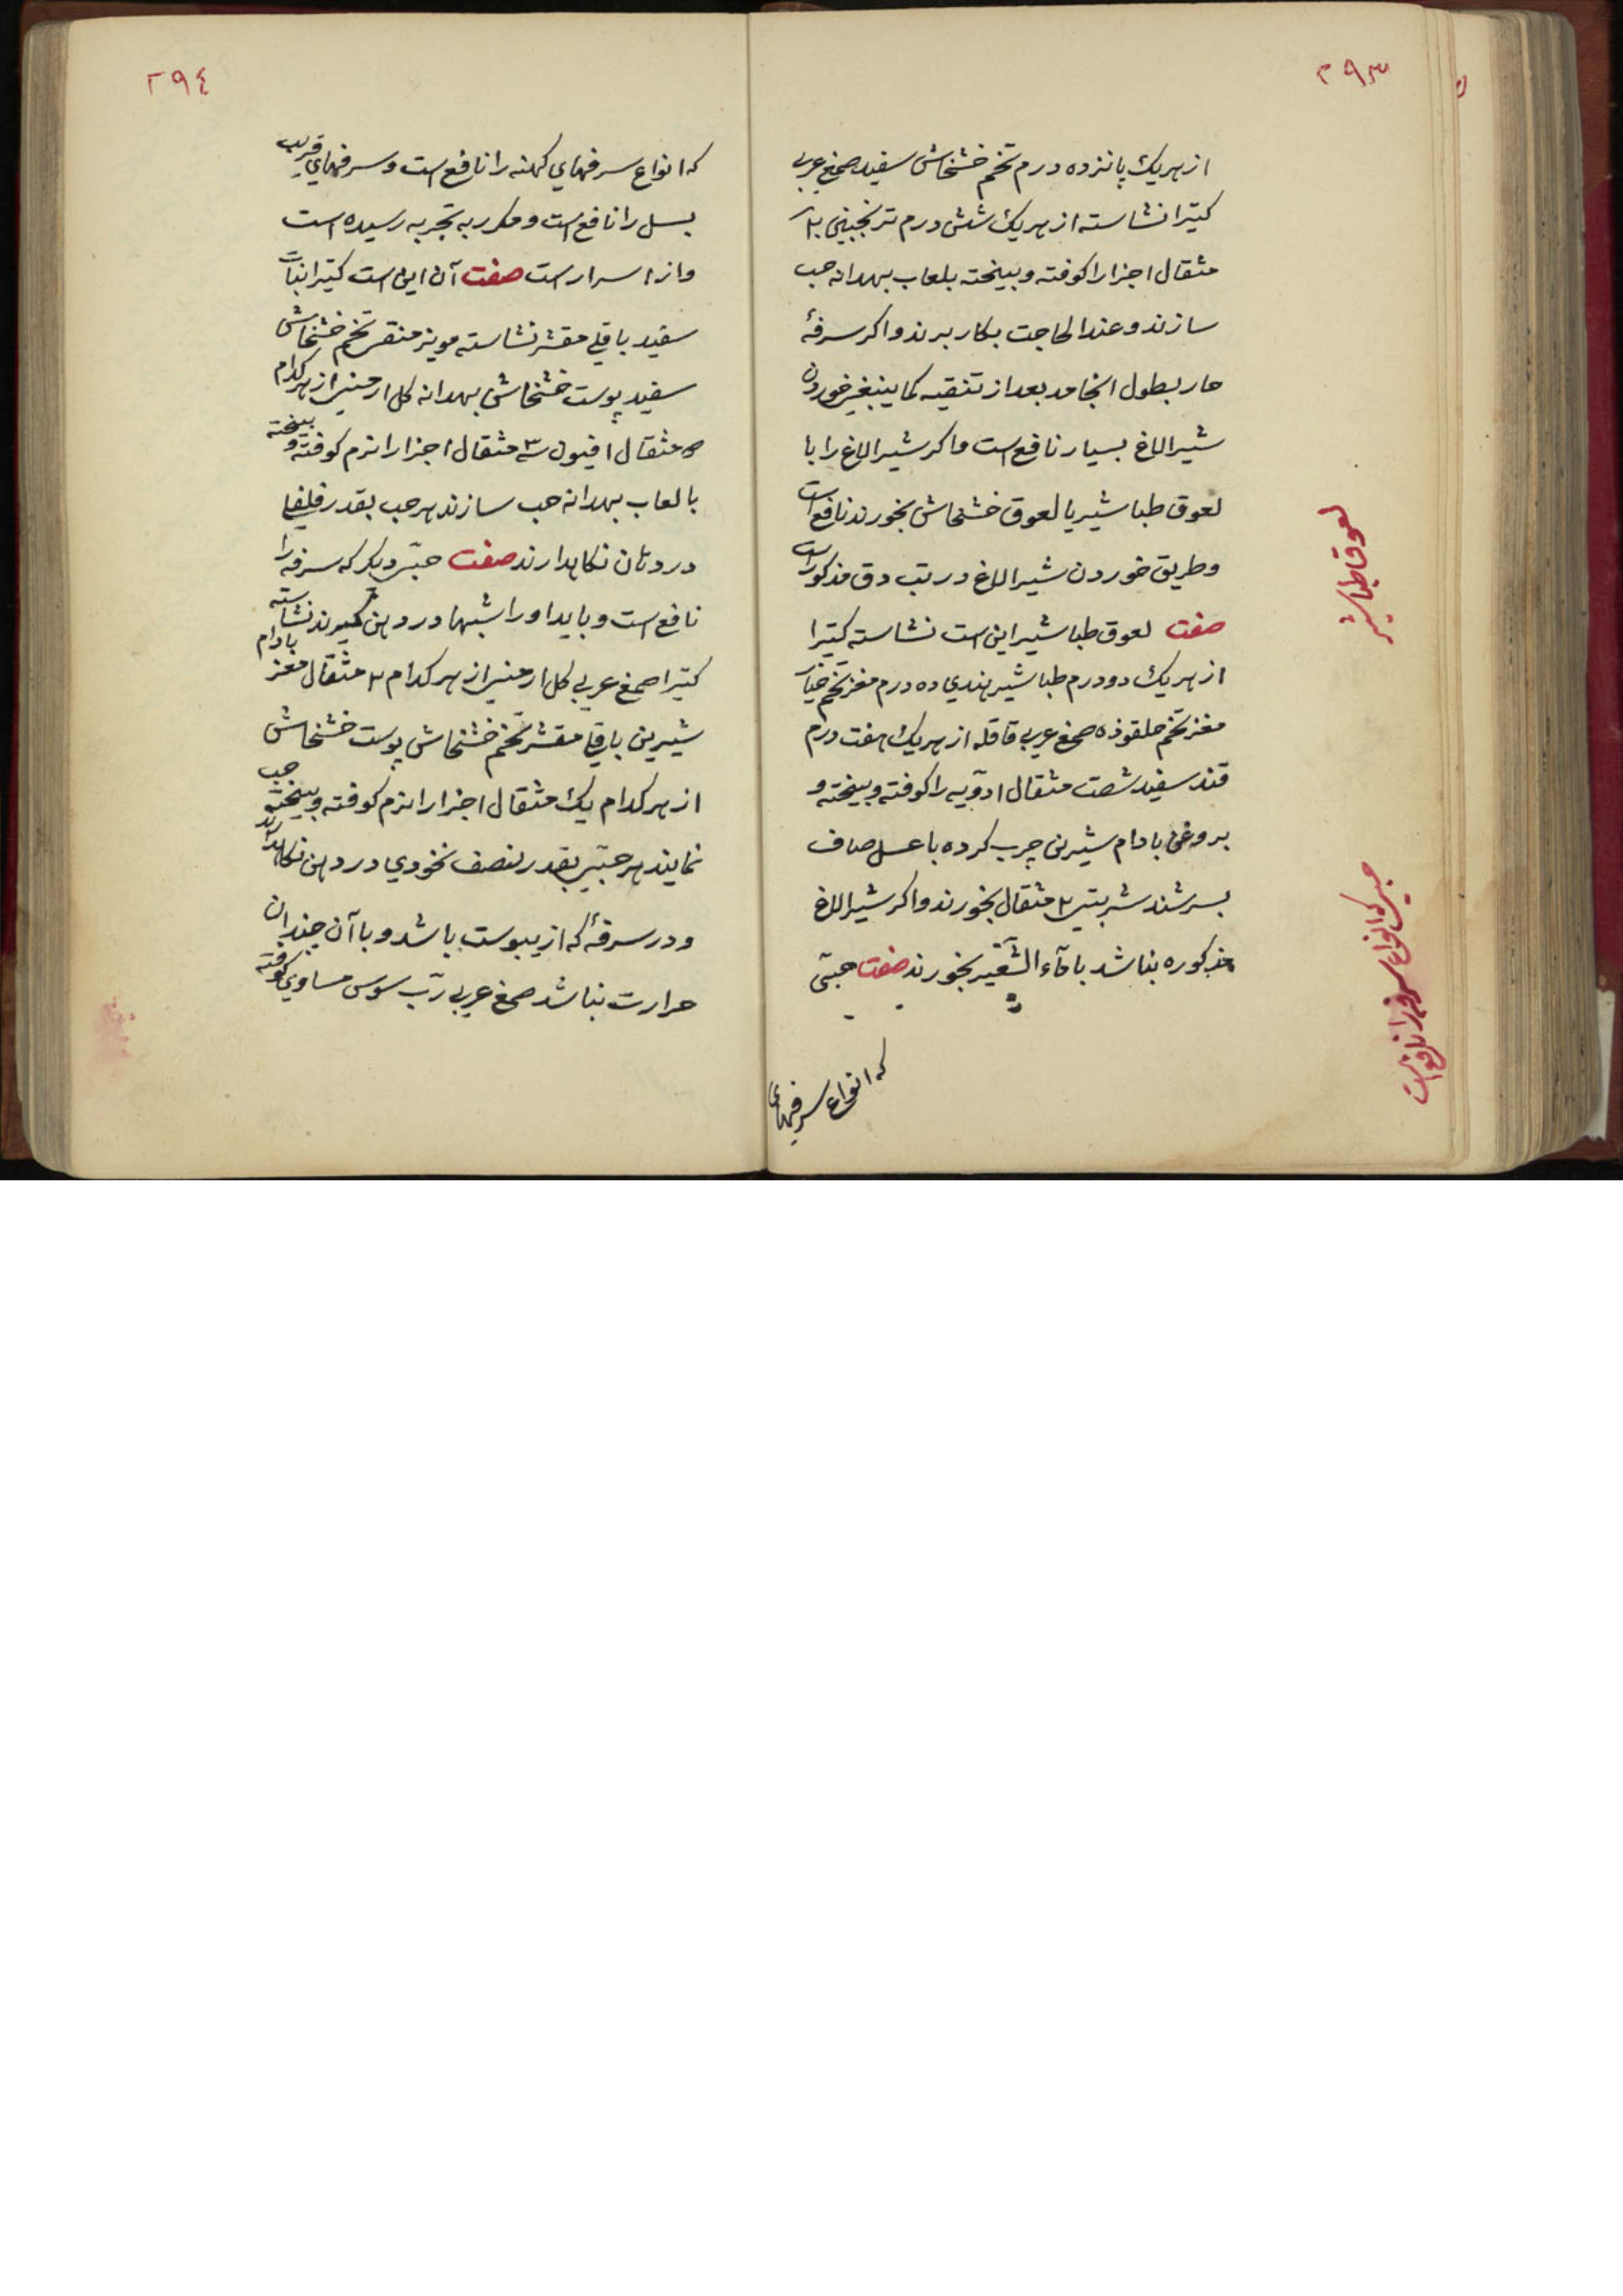 ۲۹۳
از هر یک پانزده درم تخم خشخاش سفید صمغ عربی
کتیرا نشاسته از هر یک شش درم ترنجبین
مثقال اجزا را کوفته و بیخته بلعاب بهدانه حب
سازند و عند الحاجت بکار برند و اکر سرفهٔ
حار بطول انجامد بعد از تنقیه کما ینبغی خوردن
شیر الاغ بسیار نافع است و اکر شیر الاغ را با
لعوق طباشیر یا لعوق خشخاش بخورند نافع است
و طریق خوردن شیر الاغ در تب دق مذکور است
صفت لعوق طباشیر این است نشاسته کتیرا
از هر یک دو درم طباشیر هندی ده درم مغز تخم خیار
مغز تخم صمغ عربی قاقله از هر یک هفت درم
قند سفید شصت مثقال ادویه را کوفته و بیخته و
بروغن بادام شیرین چرب کرده با عسل صاف
بسرشند شربتی ۲ مثقال بخورند و اکر شیر الاغ
مذکوره نباشد با مآء الشعیر بخورند صفت حبّی
که انواع سرفهای
لعوق طباشیر
حبی که انواع سرفه را نافع است
۲۹٤
که انواع سرفهای کهنه را نافع است و سرفهای قریب
بسل را نافع است و مکرر به تجربه رسیده است
و از اسرار است صفت آن این است کتیرا نبات
سفید باقلی مقشر نشاسته مویز منقی تخم خشخاش
سفید پوست خشخاش بهدانه کل ارمنی از هر کدام
۵ مثقال افیون ۳ مثقال اجزا را نرم کوفته و بیخته
با لعاب بهدانه حب سازند هر حب بقدر فلفلی
در دهان نکاهدارند صفت حبّی دیکر که سرفه را
نافع است و باید او را شبها در دهن کیرند نشاسته
کتیرا صمغ عربی کل ارمنی از هر کدام ۲ مثقال مغز بادام
شیرین باقلی مقشر تخم خشخاش پوست خشخاش
از هر کدام یک مثقال اجزا را نرم کوفته و بیخته حب
نمایند هر حبّی بقدر نصف نخودی در دهن نکاهدارند
و در سرفهٔ که از یبوست باشد و با آن چندان
حرارت نباشد صمغ عربی ربّ سوس مساوی کوفته